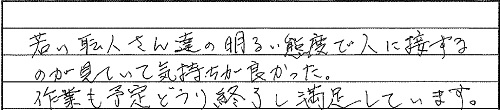 若い職人さん達の明るい態度で人に接する
のが見ていて気持ちが良かった。
作業も予定どうり終了し満足しています。